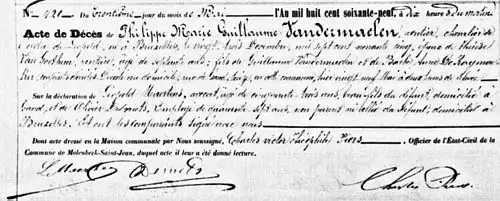 N° 421 Du trentième jour du mois de Mai l'An mil huit cent soixante-neuf, à dix heures du matin
Acte de Décès de Philippe Marie Guillaume Vandermaelen, rentier, chevalier de
l'ordre de Léopold, né à Bruxelles, le vingt trois Décembre, mil sept cent nonante cinq, époux de
Van rentière, fils de Guillaume Vandermaelen et de Barbe
conjoints décédés. Décédé en son domicile, rue de en cette commune, hier vingt neuf Mai à deux heures de
Sur la déclaration de Léopold Martins, avocat, âgé de cinquante trois ans, beau fils du défunt, domicilié à
Gand, et de Olivier employé de cinquante sept ans, non parent ni allié du défunt, domicilié à
Bruxelles. Et ont les comparants signé avec nous
Dont acte dressé en la Maison communale par Nous soussigné, Charles Victor Théophile Piers, Officier de l'État-Civil de la
Commune de Molenbeek-Saint-Jean, duquel acte il leur a été donné lecture.